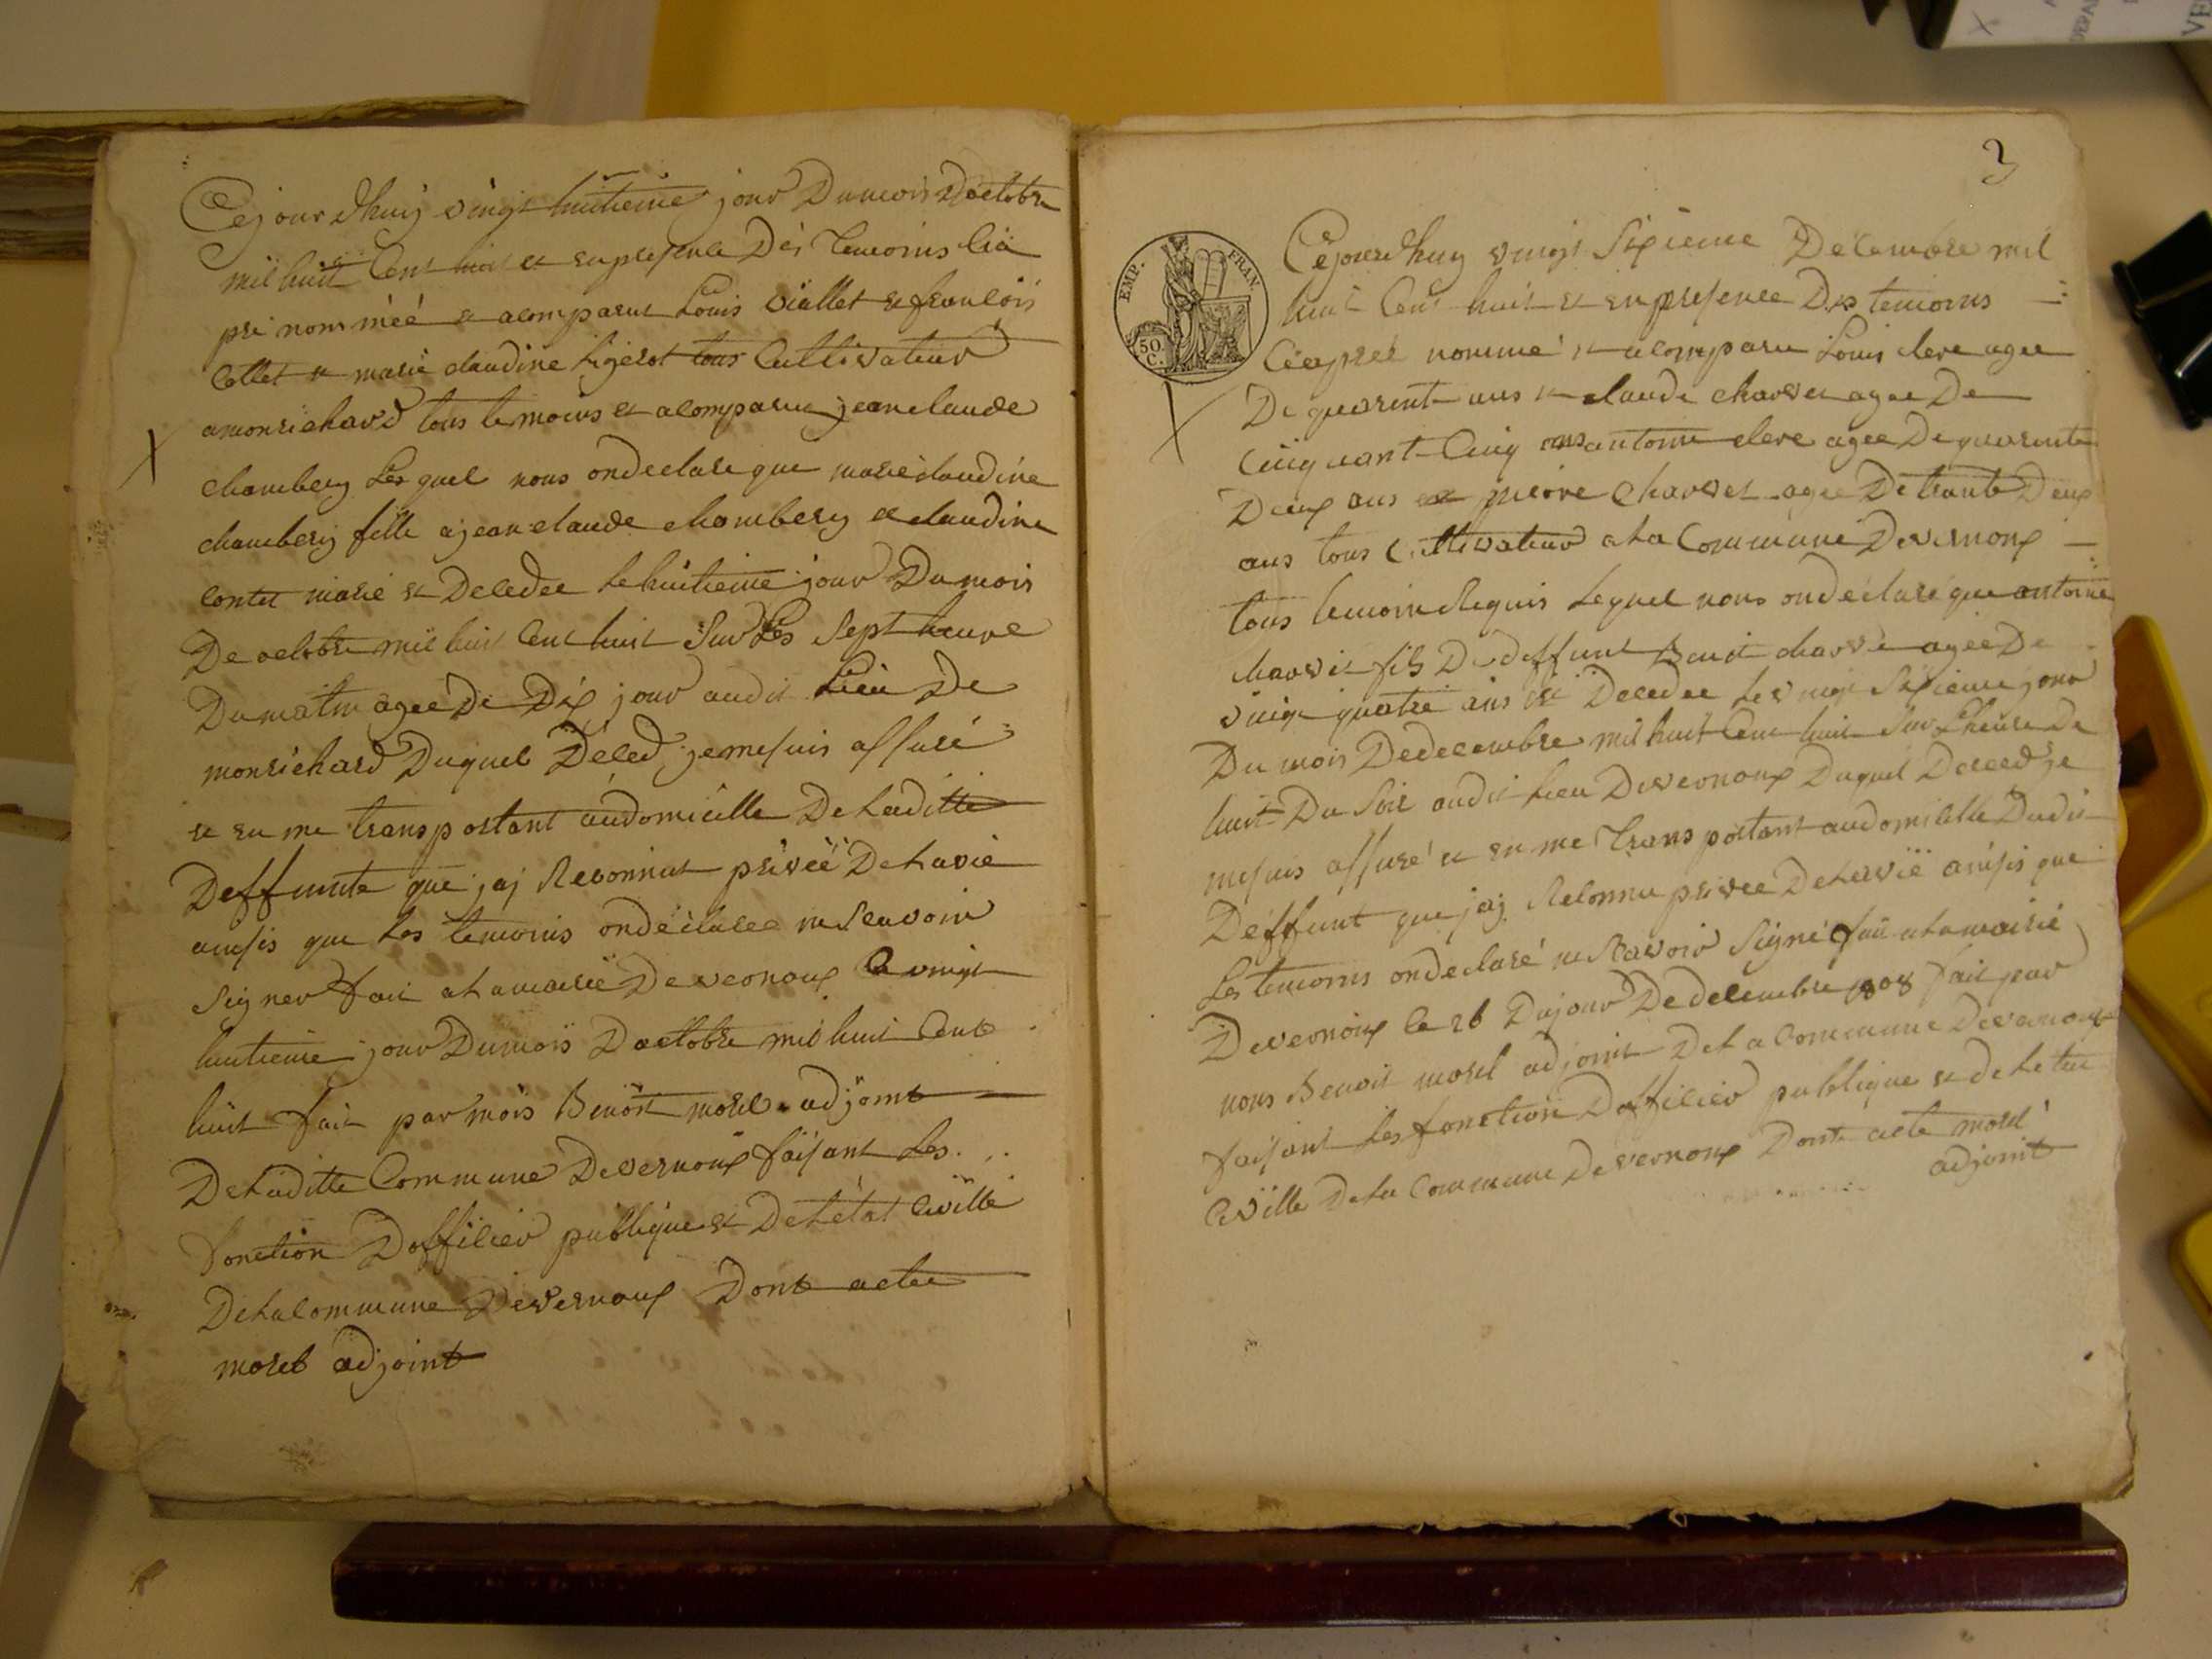 Cejourdhuij vingt huitieme jour Dumois Doctobre
mil huit Cent huit et enpresence Des temoins Cia
pre nommèé et acomparut Louis viallet et francois
Collet et marie claudine ligerot tous Cultivateur
amonrichard tous temoins et acomparut jean claude
chambery Les quel nous ondeclare que marie claudine
chambery fille a jean claude chambery et claudine
contet marié et Decedee Le huitieme jour Du mois
De octobre mil huit Cent huit Sur Les Sept heure
Dumatin agée De Dix jour audit Lieu De
monrichard Duquel Déced je mesuis assuré
et en me transportant audomicille De Laditte
Deffunte que jaj Reconnut privéé De La vie
ainsis que Les temoins ondéclaree ne Scavoir
Signer fait a La mairie De vernoux Le vingt
huitieme jour Dumois Doctobre mil huit Cent
huit fait par mois Benoit morel adjoint
De Laditte Commune De vernoux faisant Les
fonction Dofficier publique et De Létat Civille
De La Commune De vernoux Dont actee
morel adjoint
3
EMP. FRAN.
50 C.
Cejourdhuy vingt Sixieme Décembre mil
huit Cent huit et enpresence Des temoins
Cieaprés nommé et acomparu Louis clere agee
De quarente ans et claude charvet agee De
Cinquant Cinq ans antoine clere agee De quarente
Deux ans et pierre charvet agee De trante Deux
ans tous Cultivateur a La Commune De vernoux
tous temoin Requis Lequel nous ondéclaré que antoine
charvet fils De deffunt Benoit charvé agée De
vingt quatre ans est Decedee Le vingt Sixieme jour
Du mois De decembre mil huit Cent huit Sur L'heure De
huit Du Soir audit Lieu De vernoux Duquel Deced je
mesuis assuré et en me transportant audomicille Dudit
Déffunt que jaj Reconnu privee De La vie ainsis que
Les temoins ondeclaré ne Scavoir Signé fait a La mairié
De vernoux Le 26 Dujour De decembre 1808 fait par
nous Benoit morel adjoint De La Commune De vernoux
faisant Les fonction Dofficier publique et de Letat
Civille De La Commune De vernoux Dont acte morel
adjoint